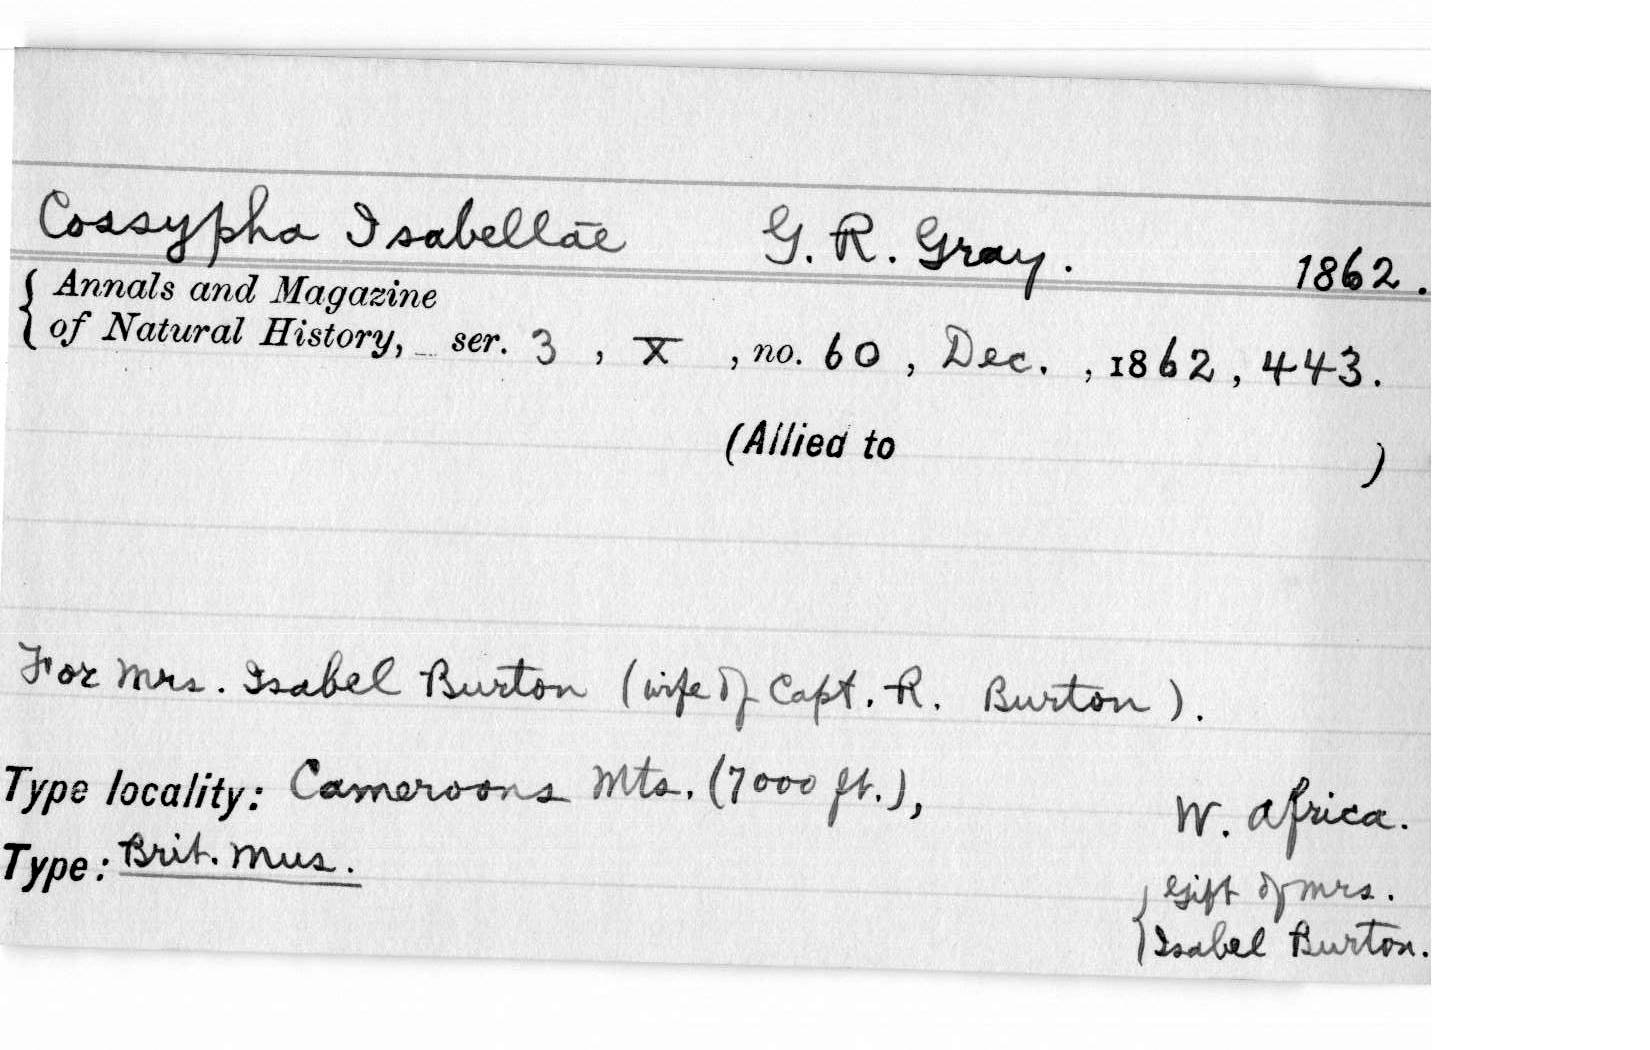 Cossypha Isabellae G. R. Gray. 1862.
{ Annals and Magazine
of Natural History, ser. 3, X, no. 60, Dec., 1862, 443.
(Allied to )
For Mrs. Isabel Burton (wife of Capt. R. Burton).
Type locality: Cameroons Mts. (7000 ft.), W. Africa.
Type: Brit. Mus.
{ Gift of Mrs.
Isabel Burton.